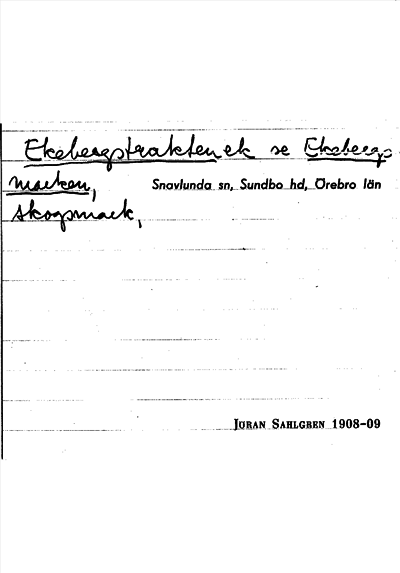 Ekebergstrakten ek se Ekebergs
marken,
Snavlunda sn, Sundbo hd, Örebro län
skogsmark,
Jöran Sahlgren 1908-09